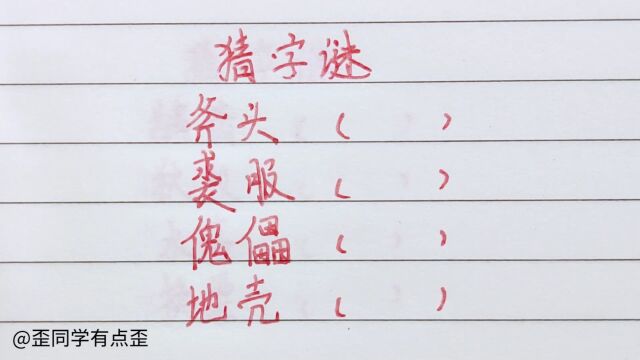 猜字谜
斧头 ( )
裘服 ( )
傀儡 ( )
地壳 ( )
@歪同学有点歪